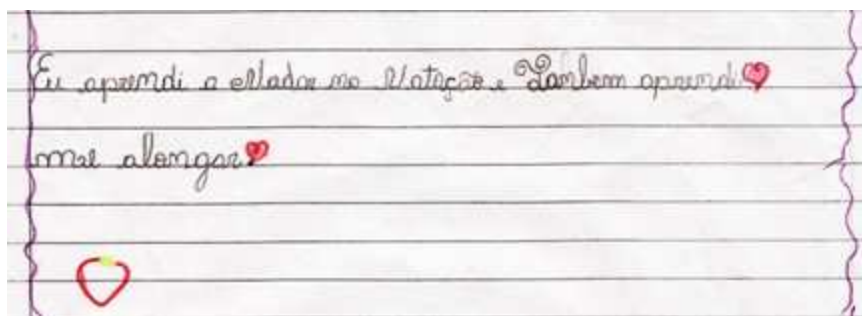 Eu aprendi a Nadar no Natação e Tanbem aprendi
mae alongar